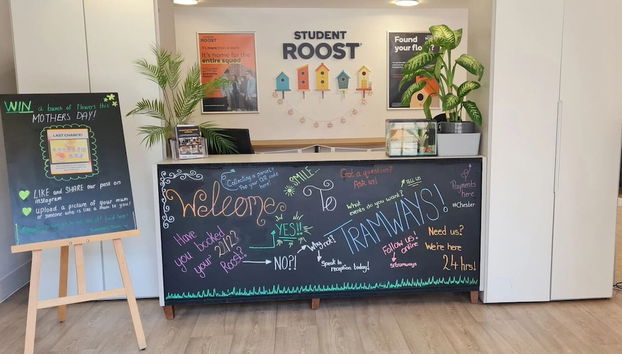 STUDENT
ROOST
ROOST
It's home for the
entire squad
Found
your flo
WIN a bunch of flowers this
MOTHERS DAY!
LAST CHANCE!
LIKE and SHARE our post on
instagram
Upload a picture of your mum
or someone who is like a mum to you!
Collecting a parcel?
Pop your QR code
here!
SMILE
Got a question?
Ask us!
Welcome
To
TRAMWAYS!
What
events do you want?
TELL US
Payments
here
#Chester
Have
you booked
your 21/22
Roost?
YES!!
NO?!
Why not?
Speak to
reception today!
Follow us
online
@tramways
Need us?
We're here
24hrs!